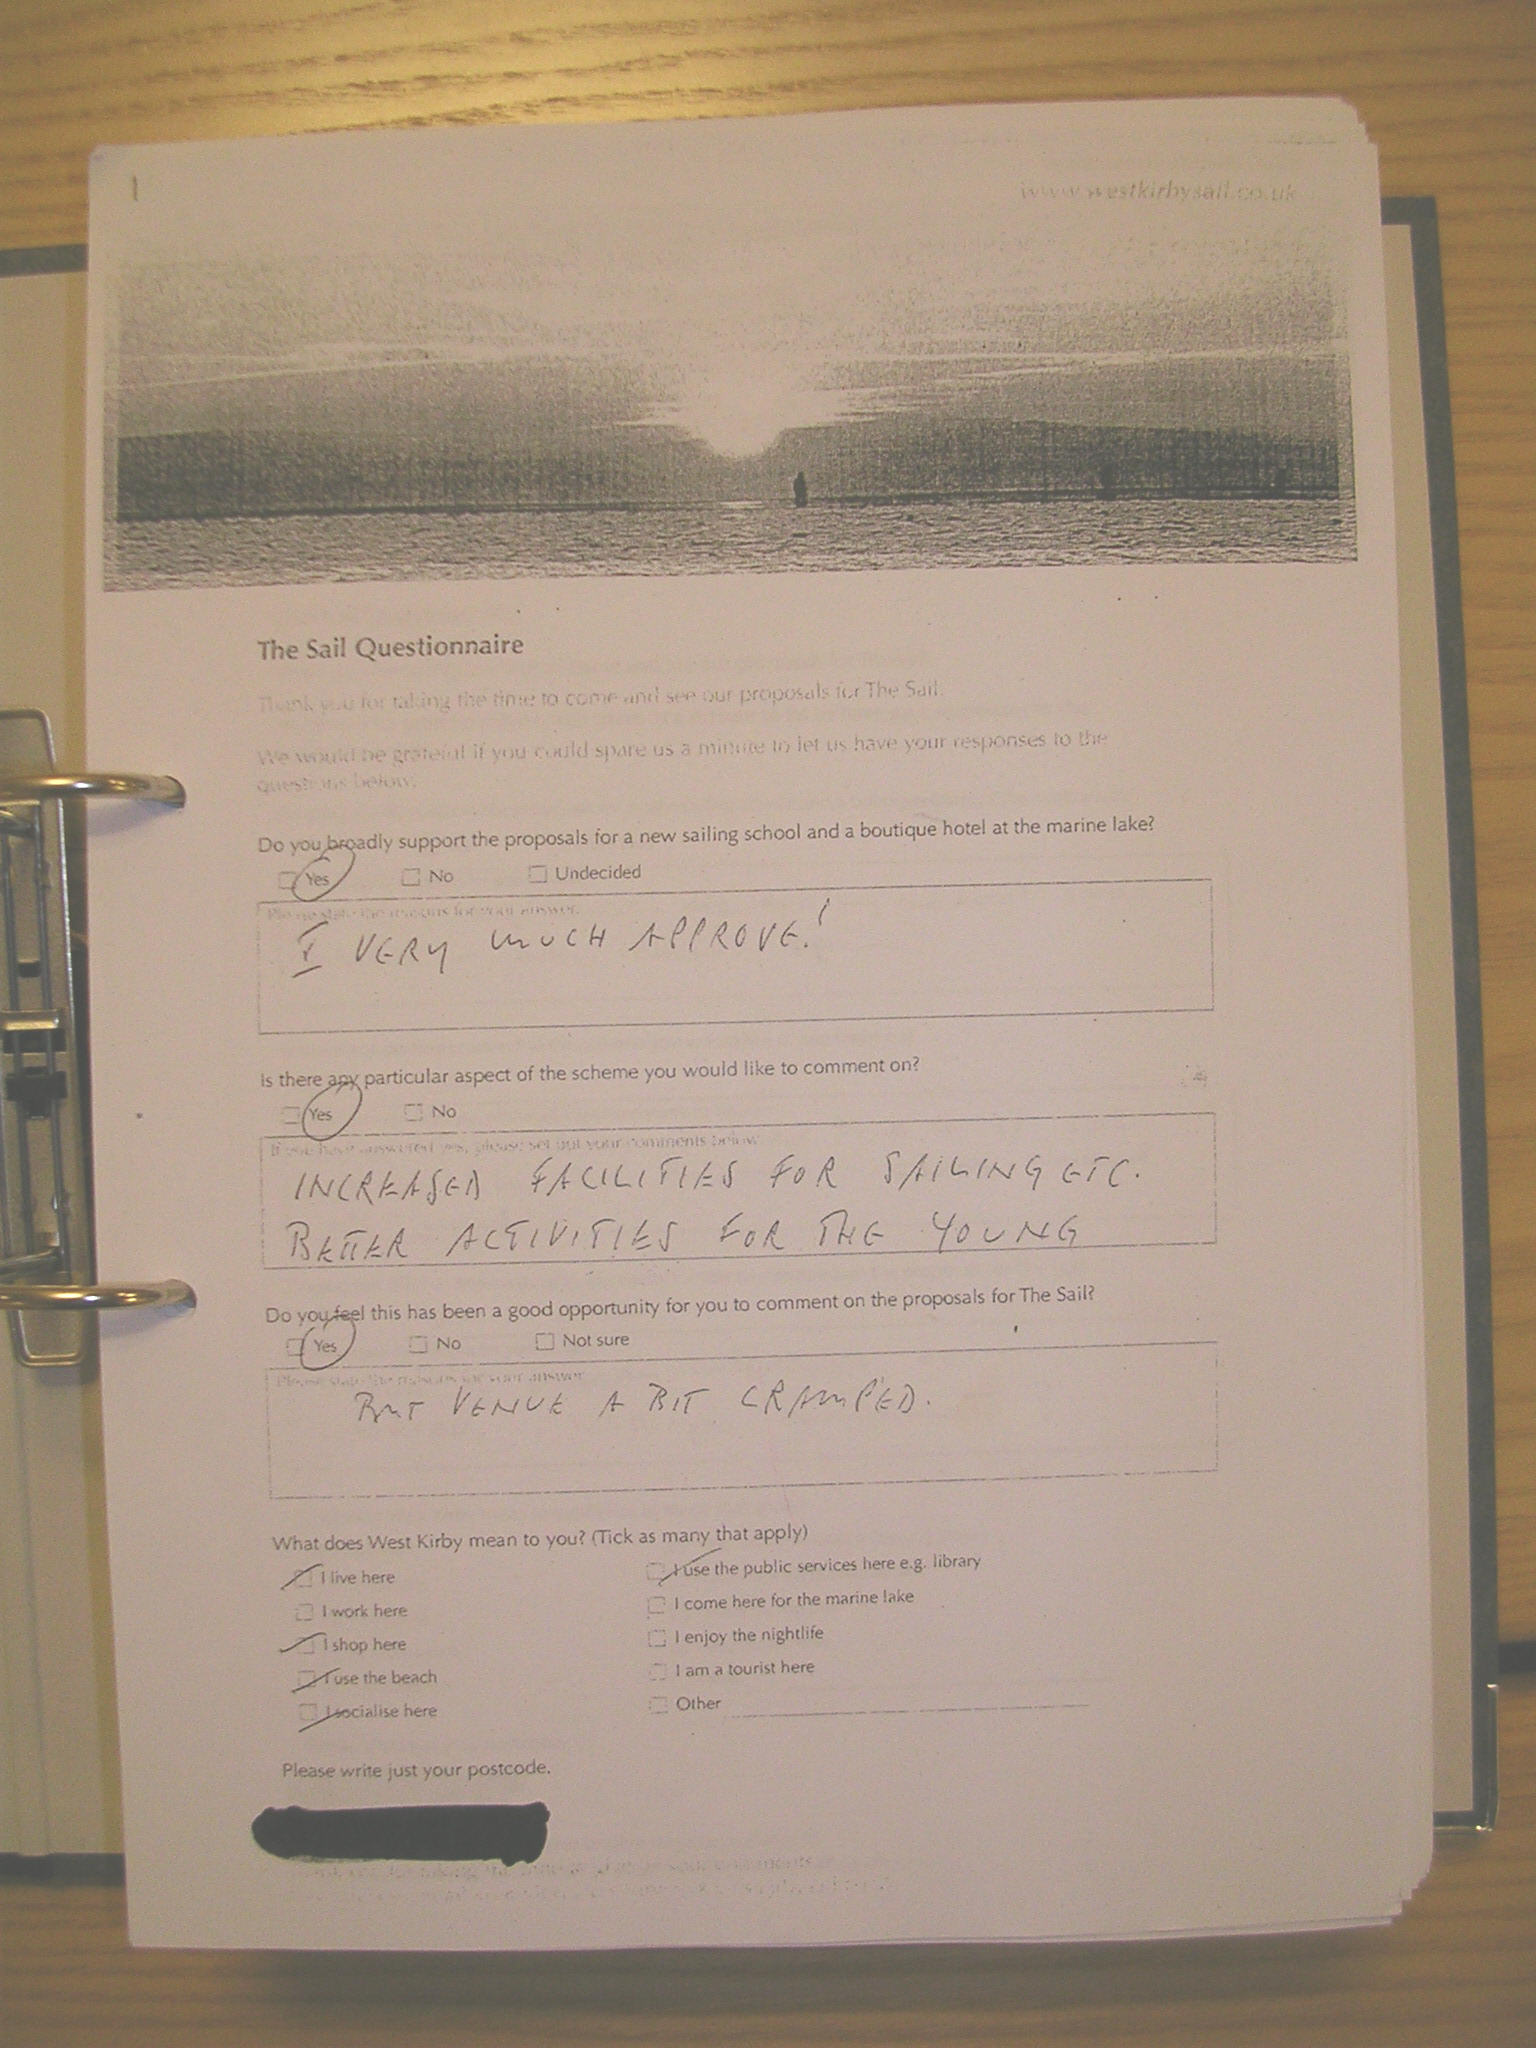 1
www.westkirbysail.co.uk
The Sail Questionnaire
Thank you for taking the time to come and see our proposals for The Sail.
We would be grateful if you could spare us a minute to let us have your responses to the
questions below.
Do you broadly support the proposals for a new sailing school and a boutique hotel at the marine lake?
Yes No Undecided
Please state the reasons for your answer.
I VERY MUCH APPROVE!
Is there any particular aspect of the scheme you would like to comment on?
Yes No
If you have answered yes, please set out your comments below
INCREASED FACILITIES FOR SAILING ETC.
BETTER ACTIVITIES FOR THE YOUNG
Do you feel this has been a good opportunity for you to comment on the proposals for The Sail?
Yes No Not sure
Please state the reasons for your answer
BUT VENUE A BIT CRAMPED.
What does West Kirby mean to you? (Tick as many that apply)
I live here I use the public services here e.g. library
I work here I come here for the marine lake
I shop here I enjoy the nightlife
I use the beach I am a tourist here
I socialise here Other
Please write just your postcode.